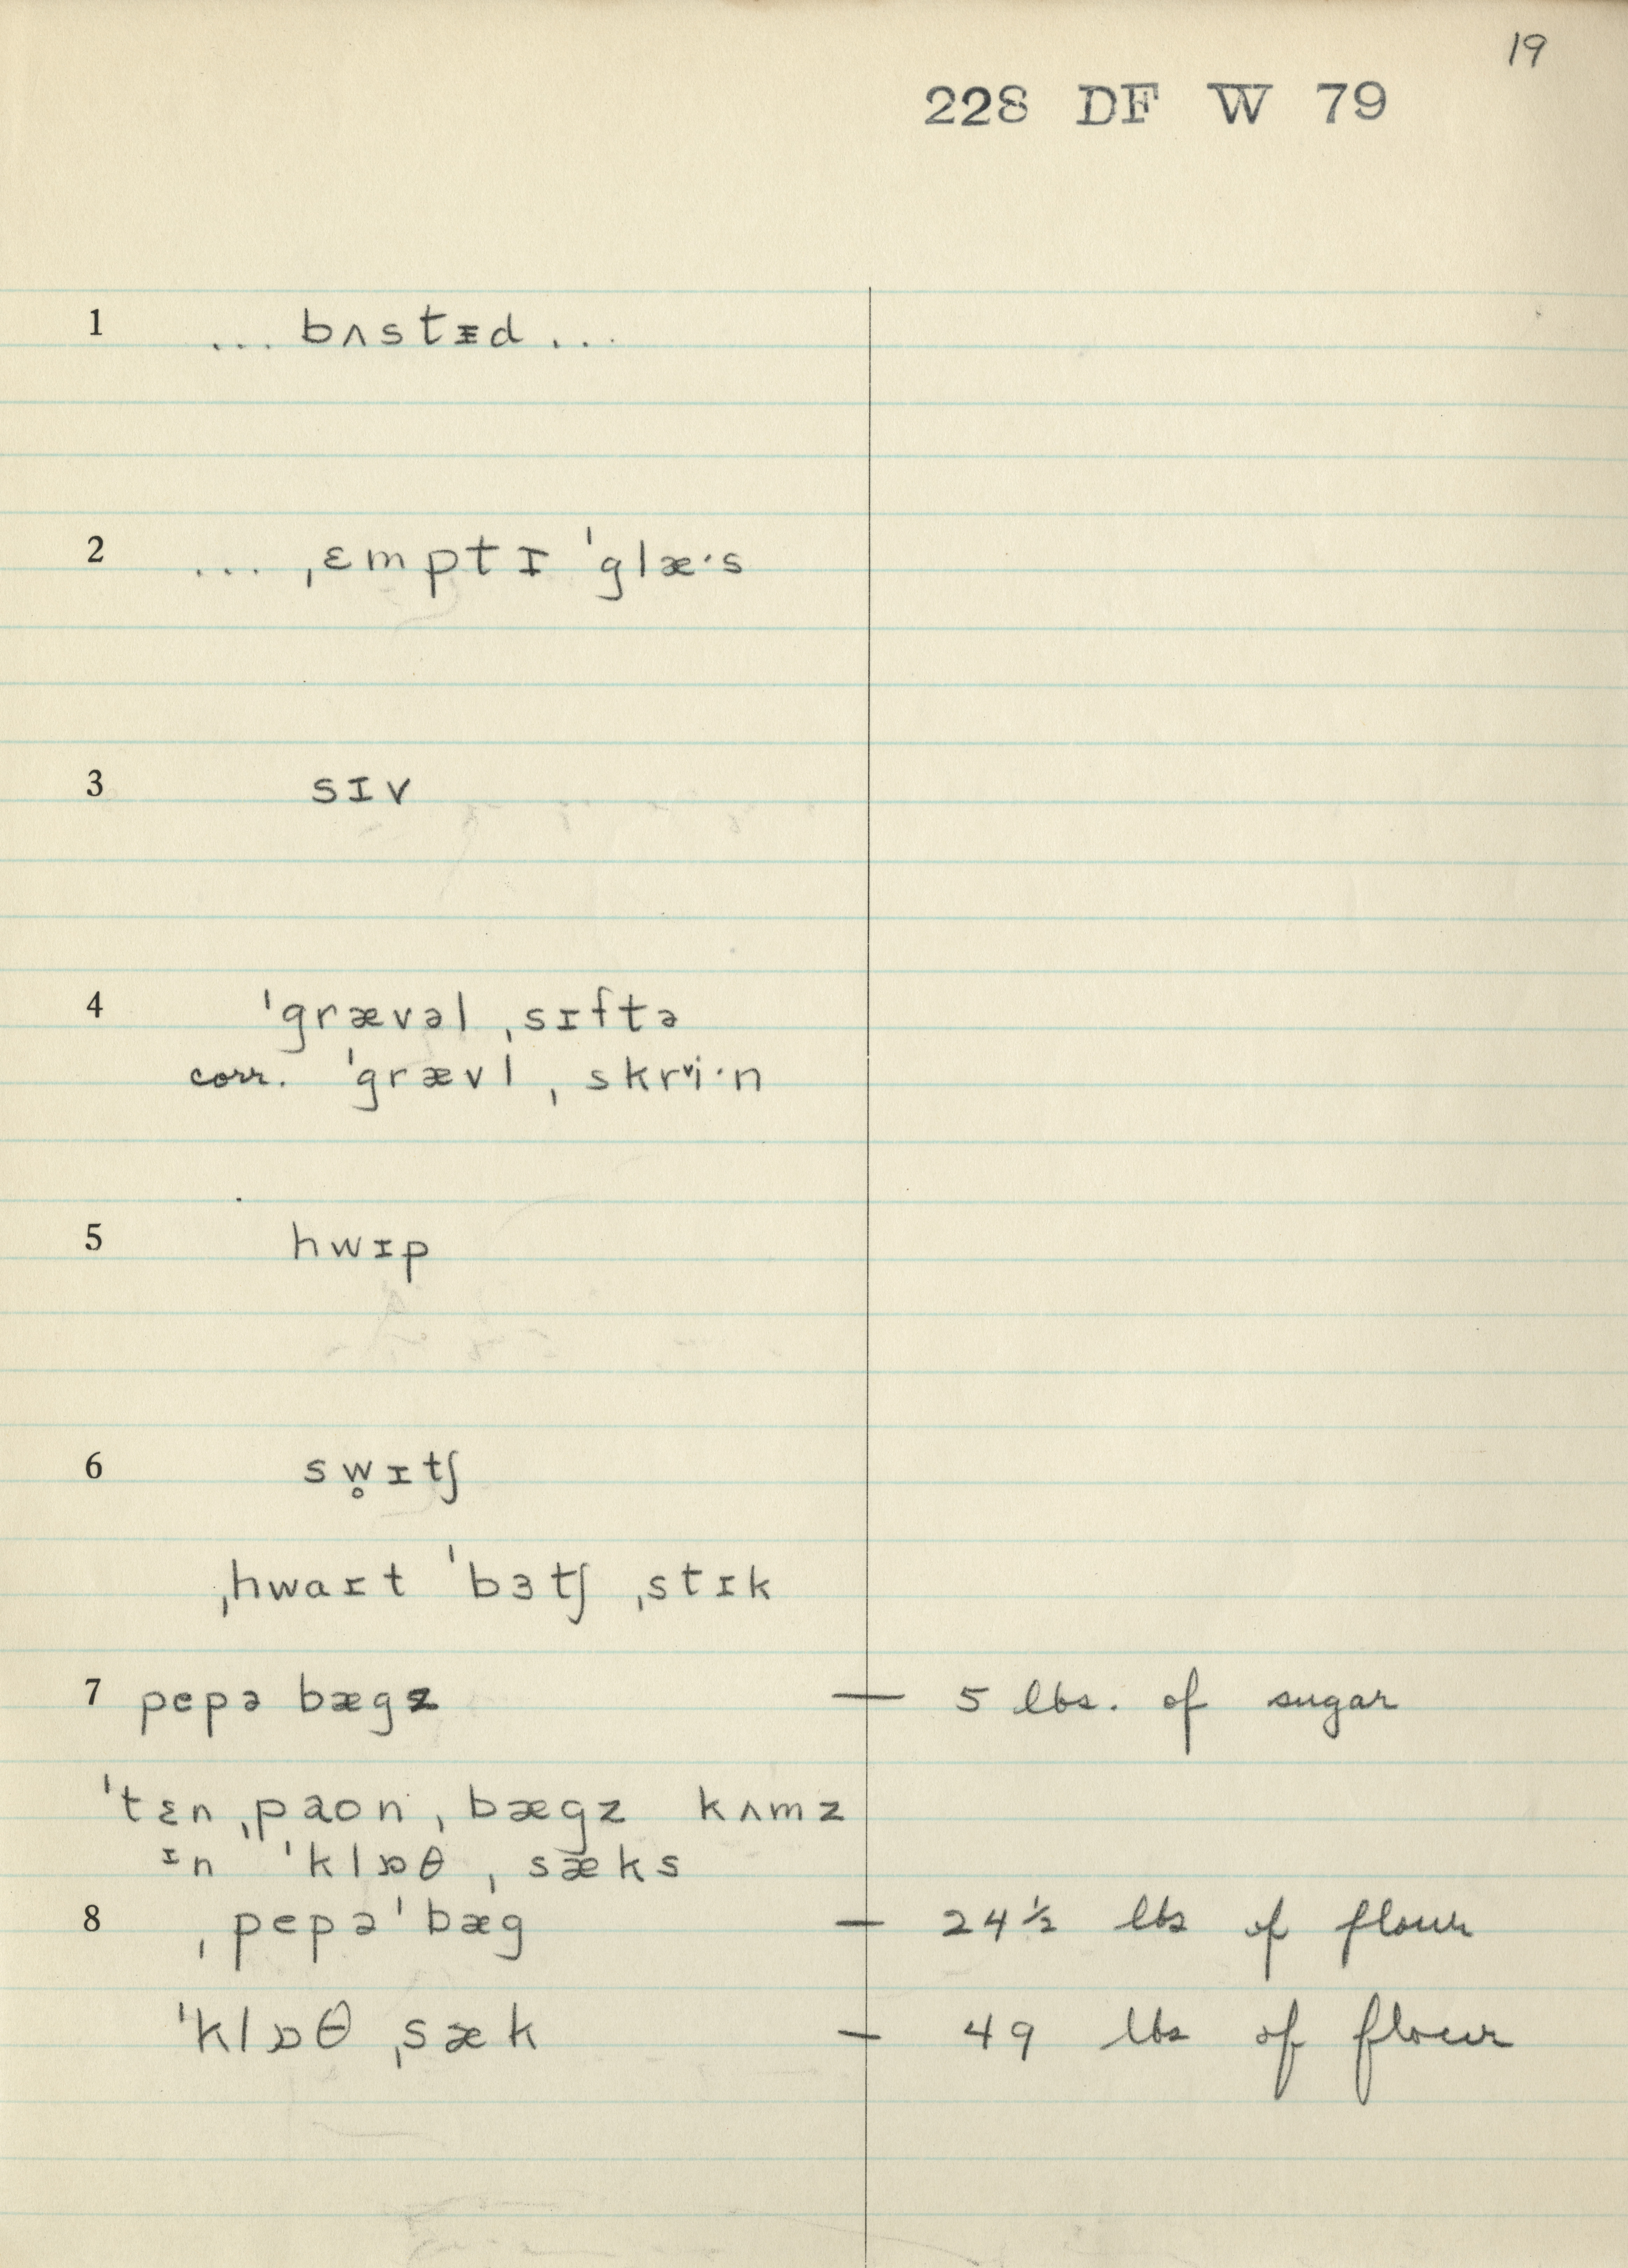 19
228 DF W 79
1 ... bʌstᵻd ...
2 ... ˌɛmptɪ ˈglæ·s
3 sɪv
4 ˈgrævəl ˌsɪftə
corr. ˈgrævl ˌskrᵛi·n
5 hwɪp
6 sw̥ɪtʃ
ˌhwaɪt ˈbɜtʃ ˌstɪk
7 pepə bægz — 5 lbs. of sugar
ˈtɛn ˌpaon ˌbægz kʌmz
ɪn ˈklɒθ ˌsæks
8 ˌpepəˈbæg — 24½ lbs of flour
ˈklɒθ ˌsæk — 49 lbs of flour